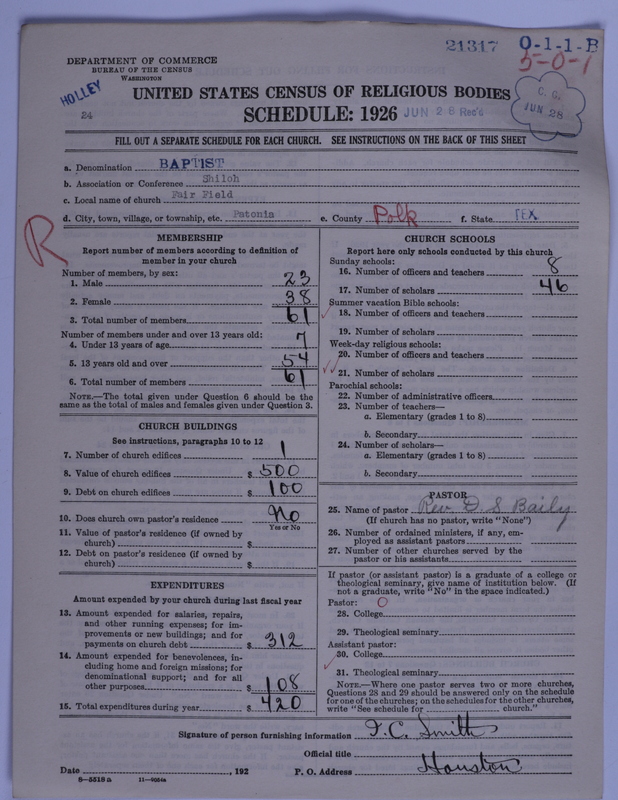 21317 0-1-1-B
5-0-1
DEPARTMENT OF COMMERCE
BUREAU OF THE CENSUS
WASHINGTON
HOLLEY
24
UNITED STATES CENSUS OF RELIGIOUS BODIES
SCHEDULE: 1926 JUN 28 Rec'd
C. G.
JUN 28
FILL OUT A SEPARATE SCHEDULE FOR EACH CHURCH. SEE INSTRUCTIONS ON THE BACK OF THIS SHEET
a. Denomination BAPTIST
b. Association or Conference Shiloh
c. Local name of church Fair Field
d. City, town, village, or township, etc. Patonia e. County Polk f. State TEX.
R
MEMBERSHIP
Report number of members according to definition of
member in your church
Number of members, by sex:
1. Male 23
2. Female 38
3. Total number of members 61
Number of members under and over 13 years old:
4. Under 13 years of age 7
5. 13 years old and over 54
6. Total number of members 61
NOTE.—The total given under Question 6 should be the
same as the total of males and females given under Question 3.
CHURCH BUILDINGS
See instructions, paragraphs 10 to 12
7. Number of church edifices 1
8. Value of church edifices $ 500
9. Debt on church edifices $ 100
10. Does church own pastor's residence No
Yes or No
11. Value of pastor's residence (if owned by
church) $
12. Debt on pastor's residence (if owned by
church) $
EXPENDITURES
Amount expended by your church during last fiscal year
13. Amount expended for salaries, repairs,
and other running expenses; for im-
provements or new buildings; and for
payments on church debt $ 312
14. Amount expended for benevolences, in-
cluding home and foreign missions; for
denominational support; and for all
other purposes $ 108
15. Total expenditures during year $ 420
CHURCH SCHOOLS
Report here only schools conducted by this church
Sunday schools:
16. Number of officers and teachers 8
17. Number of scholars 46
Summer vacation Bible schools:
18. Number of officers and teachers
19. Number of scholars
Week-day religious schools:
20. Number of officers and teachers
21. Number of scholars
Parochial schools:
22. Number of administrative officers
23. Number of teachers—
a. Elementary (grades 1 to 8)
b. Secondary
24. Number of scholars—
a. Elementary (grades 1 to 8)
b. Secondary
PASTOR
25. Name of pastor Rev. D S Baily
(If church has no pastor, write "None")
26. Number of ordained ministers, if any, em-
ployed as assistant pastors
27. Number of other churches served by the
pastor or his assistants
If pastor (or assistant pastor) is a graduate of a college or
theological seminary, give name of institution below. (If
not a graduate, write "No" in the space indicated.)
Pastor: O
28. College
29. Theological seminary
Assistant pastor:
30. College
31. Theological seminary
NOTE.—Where one pastor serves two or more churches,
Questions 28 and 29 should be answered only on the schedule
for one of the churches; on the schedules for the other churches,
write "See schedule for church."
Signature of person furnishing information F. C. Smith
Official title
Date , 192 P. O. Address Houston
8—5518 a 11—9054a